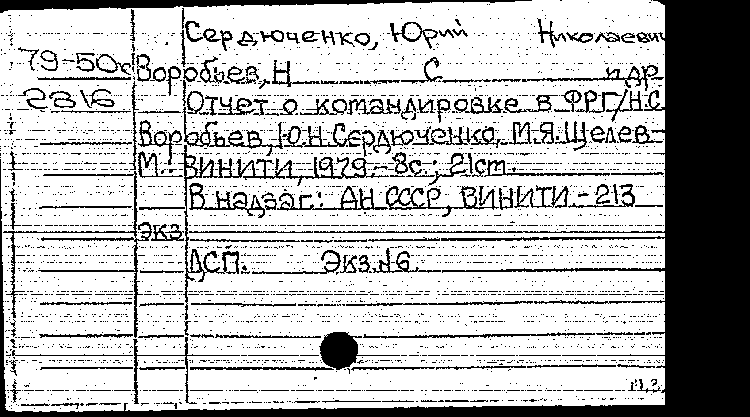 Сердюченко, Юрий Николаевич
79-50к Воробьев, Н С и др
2816 Отчет о командировке в ФРГ/Н.С.
Воробьев, Ю.Н.Сердюченко, М.Я.Щелев-
М.: ВИНИТИ, 1979.-8с.; 21cm.
В надзаг.: АН СССР, ВИНИТИ.-213
экз
ДСП. Экз.№6.